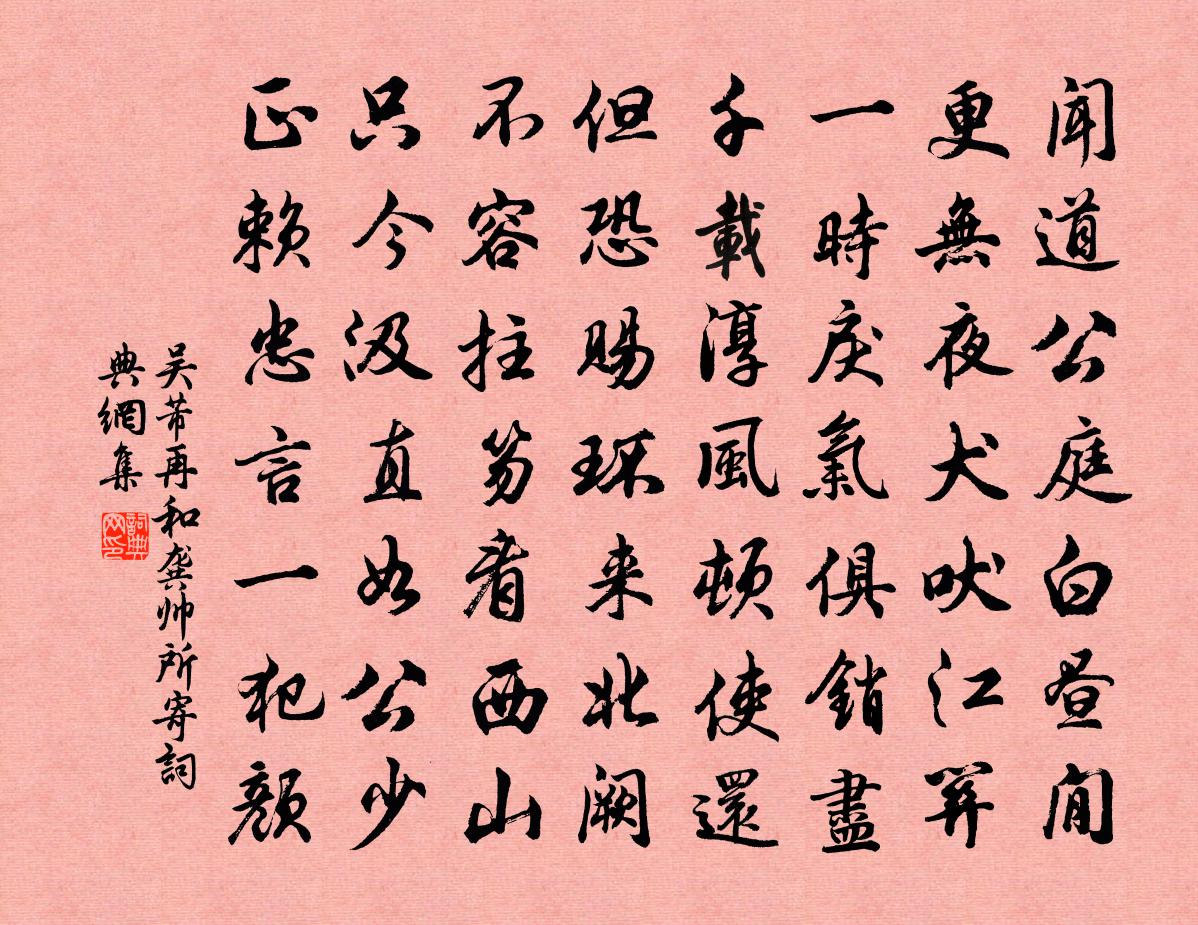 聞道公庭白晝閒
更無夜犬吠江關
一時戾氣俱銷盡
千載淳風頓使還
但恐賜環来北闕
不容拄笏看西山
只今汲直如公少
正赖忠言一犯顏
吴芾再和龚帅所寄詞
典網集
詞典
网印